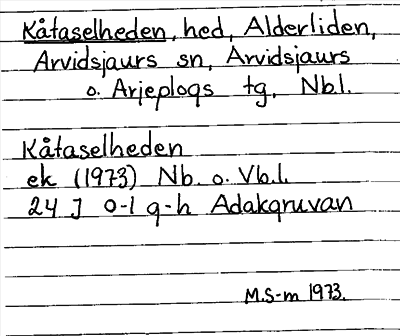 Kåtaselheden, hed, Alderliden,
Arvidsjaurs sn, Arvidsjaurs
o. Arjeplogs tg, Nbl.
Kåtaselheden
ek (1973) Nb. o. Vb.l.
24 J 0-1 g-h Adakgruvan
M.S-m 1973.